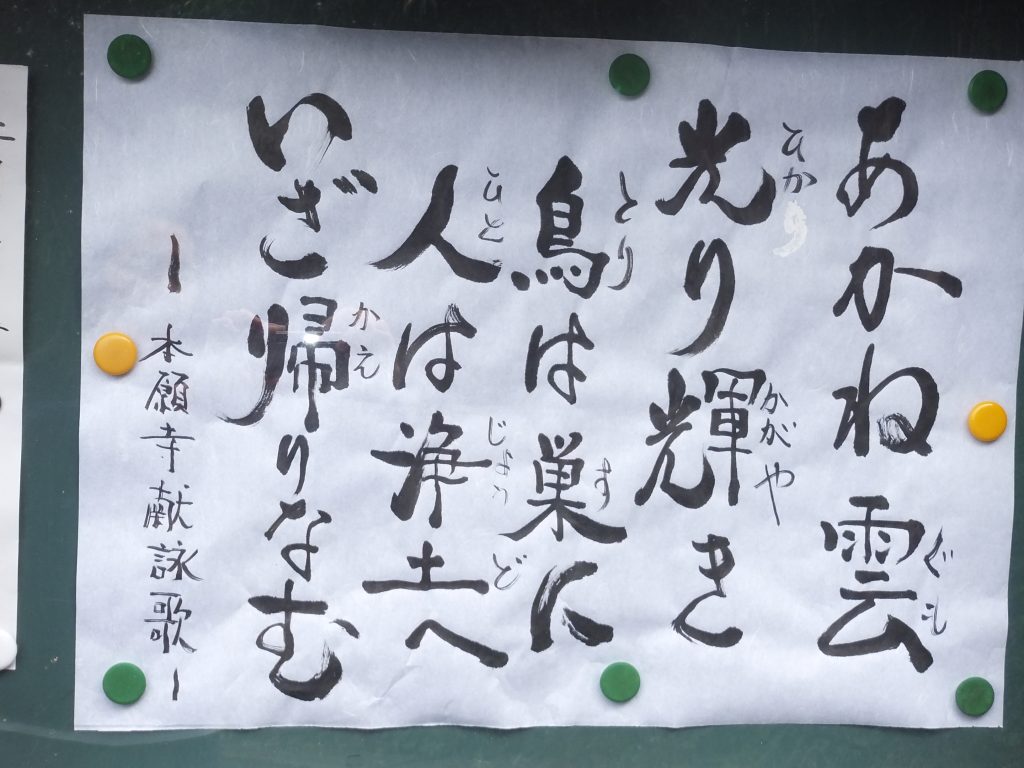 あかね雲
ぐも
光り輝き
ひかり
かがや
鳥は巣に
とり
す
人は浄土へ
ひと
じょうど
いざ帰りなむ
かえ
ー本願寺献詠歌ー